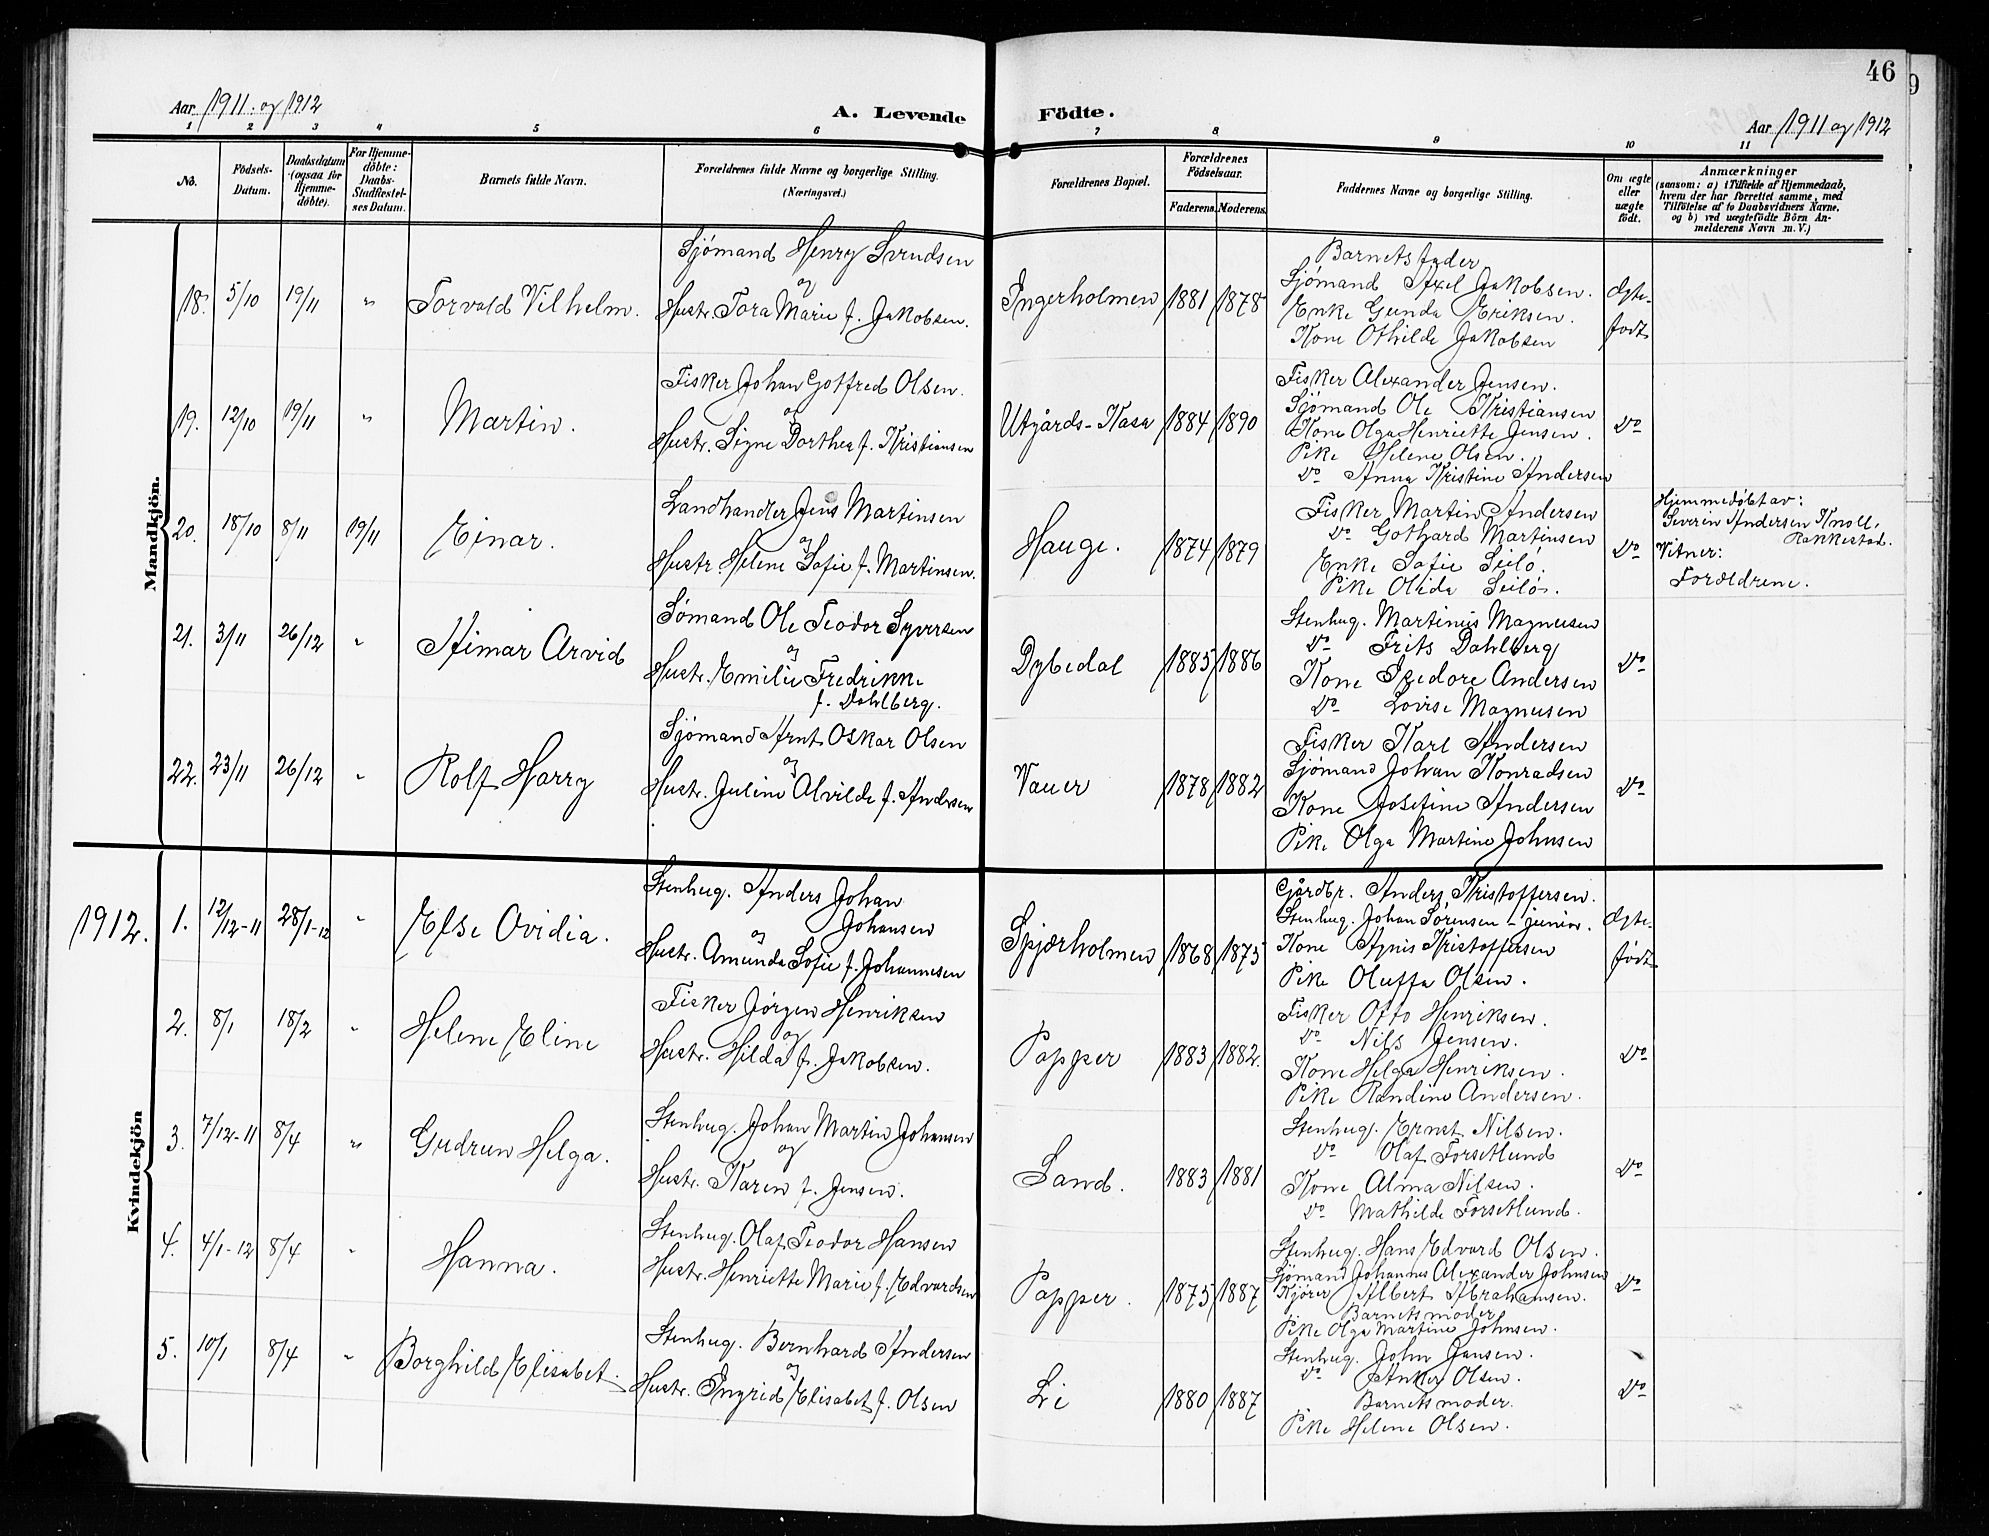 46
Aar 1911 og 1912
A. Levende Födte.
Aar 1911 og 1912
1 2 3 4 5 6 7 8 9 10 11
No.
Födsels-
Datum.
Daabsdatum
(ogsaa for
Hjemme-
döbte).
For Hjemme-
döbte:
Daabs-
Stadfæstel-
ses Datum.
Barnets fulde Navn.
Forældrenes fulde Navne og borgerlige Stilling.
(Næringsvei.)
Forældrenes Bopæl.
Forældrenes
Födselsaar.
Faderens. Moderens.
Faddernes Navne og borgerlige Stilling.
Om ægte
eller
uægte
födt.
Anmærkninger
(sansom: a) i Tilfælde af Hjemmedaab,
hvem der har forrettet samme, med
Tilföielse af to Daabsvidners Navne.
og b) ved uægtefödte Börn An-
melderens Navn m. V.)
Mandkjön.
18. 5/10 19/11 " Torvald Vilhelm.
Sjømand Henry Svendsen
og
Hustr. Tora Marie f. Jakobsen.
Ingerholmen 1881 1878
Barnets fader
Sjømand Axel Jakobsen.
Enke Gunda Eriksen.
Kone Othilde Jakobsen
Ægte-
født
19. 12/10 19/11 " Martin.
Fisker Johan Gotfred Olsen.
og
Hustr. Signe Dorthea f. Kristiansen
Utgårds-Kasa 1884 1890
Fisker Alexander Jensen.
Sjømand Ole Kristiansen
Kone Olga Henriette Jensen.
Pike Helene Olsen.
Do Anna Kristine Andersen
Do
20. 18/10 8/11 19/11 Einar.
Landhandler Jens Martinsen
og
Hustr. Helene Sofie f. Martinsen.
Hauge. 1874 1879
Fisker Martin Andersen
Do Gothard Martinsen
Enke Sofie Seilø.
Pike Olida Seilø.
Do
Hjemmedøbt av:
Severin Andersen Knoll,
Rakkestad.
Vitner:
Forældrene.
21. 3/11 26/12 " Aimar Arvid
Sømand Ole Teodor Syversen
og
Hustr. Emilie Fredrikke
f. Dahlberg.
Dybedal 1885 1886
Stenhug. Martinius Magnusen
Do Frits Dahlberg
Kone Isedore Andersen
Do Lovise Magnusen
Do
22. 23/11 26/12 " Rolf Harry
Sjømand Arnt Oskar Olsen
og
Hustr. Juline Alvilde f. Andersen
Vauer 1878 1882
Fisker Karl Andersen
Sjømand Johan Konradsen
Kone Josefine Andersen
Pike Olga Martine Johnsen
Do
Kvindekjön
1912. 1. 12/12-11 28/1-12 " Else Ovidia.
Stenhug. Anders Johan
Johansen
og
Hustr. Amunda Sofie f. Johannesen
Spjærholmen 1868 1875
Gårdbr. Anders Kristoffersen.
Stenhug. Johan Sørensen - junior.
Kone Agnis Kristoffersen
Pike Oluffa Olsen.
Ægte-
født
2. 8/1 18/2 " Helene Eline
Fisker Jørgen Henriksen
og
Hustr. Hilda f. Jakobsen.
Papper 1883 1882.
Fisker Otto Henriksen.
Do Nils Jensen.
Kone Helga Henriksen.
Pike Randine Andersen.
Do
3. 7/12-11 8/4 " Gudrun Helga.
Stenhug. Johan Martin Johansen
og
Hustr. Karen f. Jensen.
Sand. 1883 1881
Stenhug. Ernst Nilsen.
Do Olaf Forsetlund
Kone Alma Nilsen.
Do Mathilde Forsetlund.
Do
4. 4/1-12 8/4 " Hanna.
Stenhug. Olaf Teodor Hansen
Hustr. Henriette Marie f. Edvardsen
Papper. 1875 1887
Stenhug. Hans Edvard Olsen.
Sjømand Johannes Alexander Johnsen
Kjører Albert Abrahamsen.
Barnets moder
Pike Olga Martine Johnsen.
Do
5. 10/1 8/4 " Borghild Elisabet.
Stenhug. Bernhard Andersen
og
Hustr. Ingrid Elisabet f. Olsen
Li 1880 1887
Stenhug. John Jansen.
Do Anker Olsen.
Barnets moder.
Pike Helene Olsen.
Do